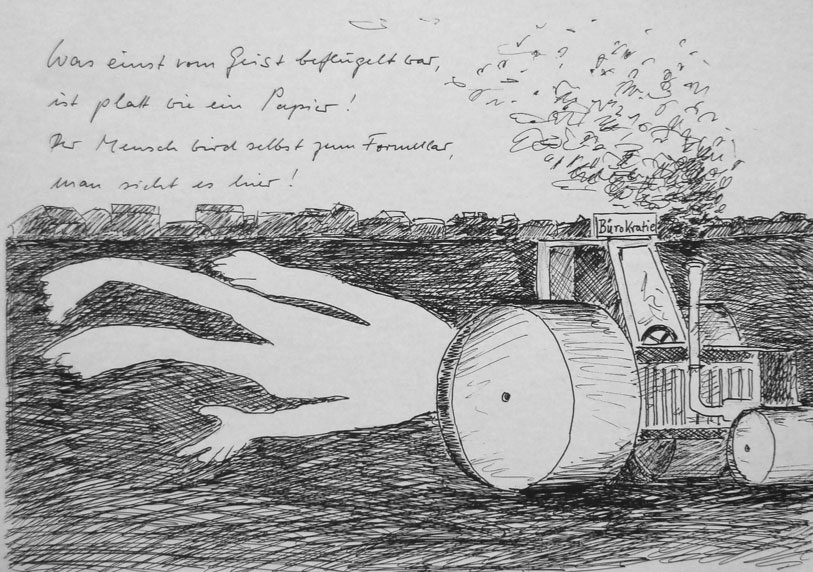 Was einst vom Geist beflügelt war,
ist platt wie ein Papier!
Der Mensch wird selbst zum Formular,
man sieht es hier!
Bürokratie